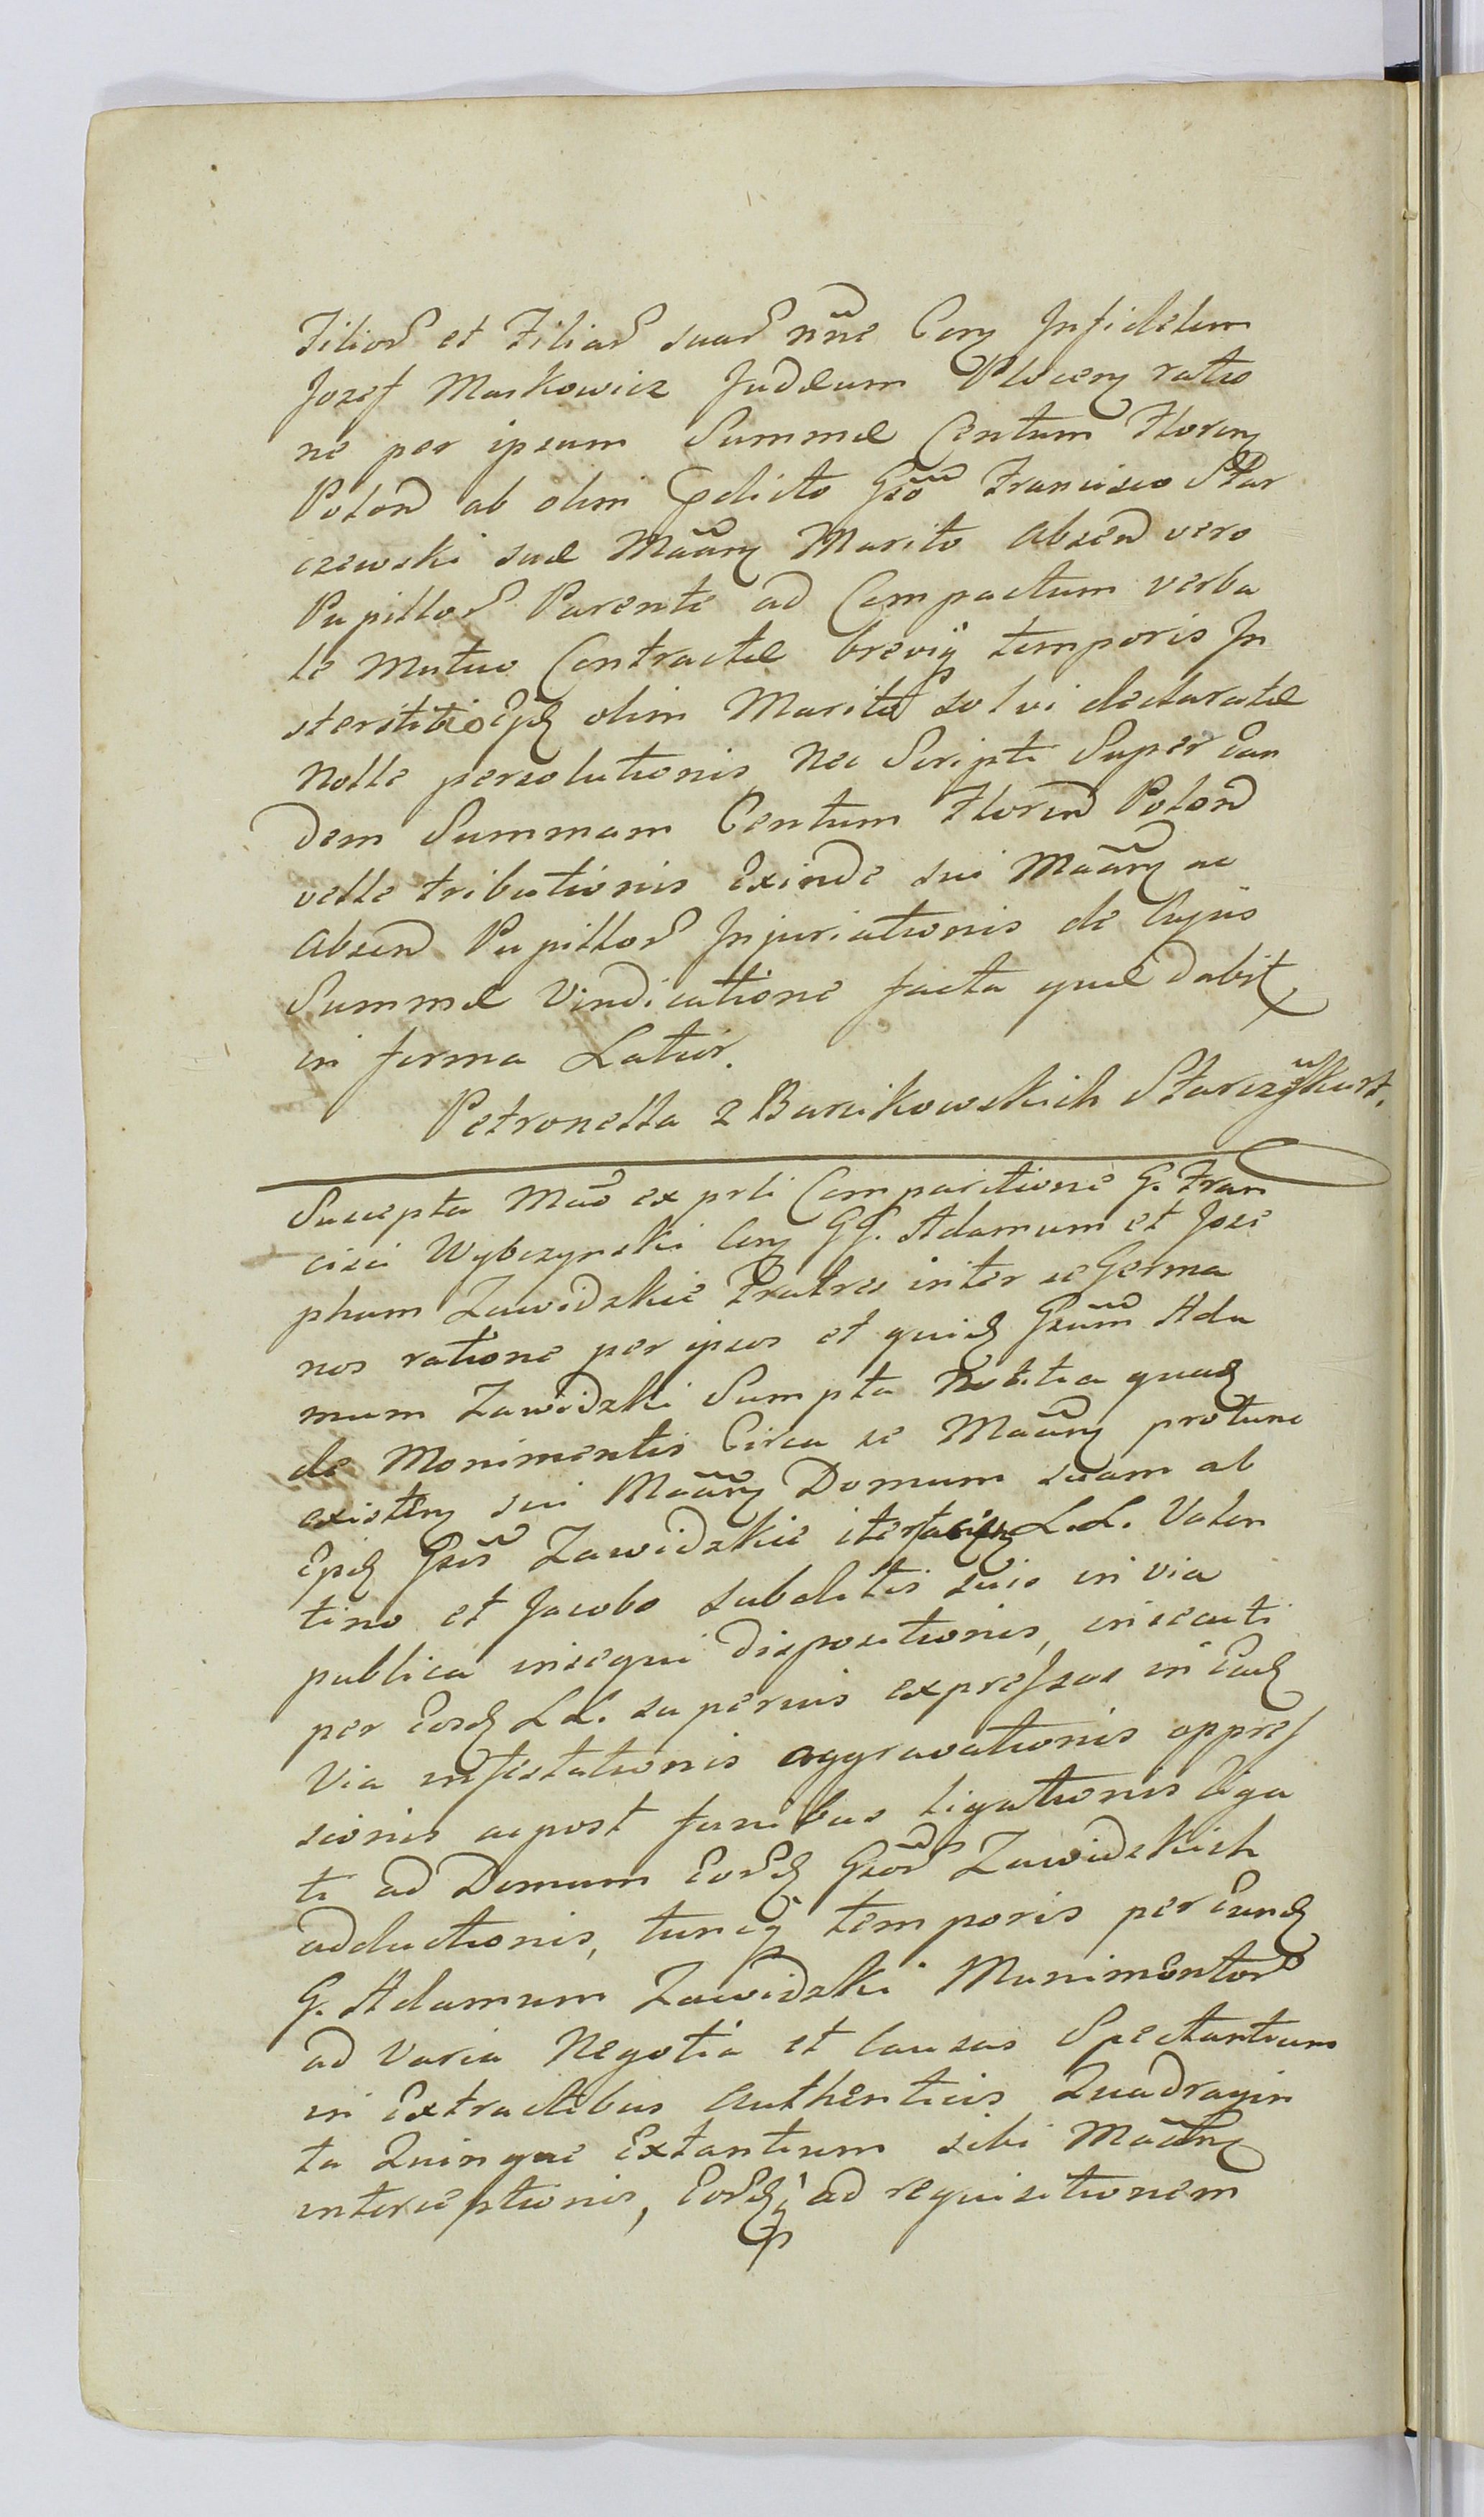 Filior et Filiar suar nne Cong Infidelem
Jozef Maskowicz Judæum Plocen ratio
ne per ipsum Summæ Centum Floren
Polon ab olim Gdicto Gso Francisco Star
czewski suæ Maãn Marito absen vero
Pupillor Parente ad Compactum verba
le Mutuo Contractæ breviÿ temporis In
sterstitio Ejd olim Marito solvi declaratæ
Nolle persolutionis nec Scripti Super Ean
dem Summam Centum Floren Polon
velle tributionis Exinde sui Maãn ac
absen Pupillor Injuriationis de Cujus
Summæ Vindicatione facta quæ dabit
in forma Latior.
Petronella z Barcikowskich Starczewska
Suscepta Mão ex prli Comparitione G. Fran
cisci Wybczynski Cong GG. Adamum et Jose
phum Zawidzkie Fratres inter se Germa
nos ratione per ipsos et quid Gsum Ada
mum Zawidzki Sumpta Notitia quad
de Monimentis Circa se Maãn protunc
existen sui Maãn Domum suam ab
Epd Gsis Zawidzkie L.L. Valen
tino et Jacobo subditis suis in via
publica insequi dispositionis, insecuti
per Eosd LL. superius expressos in Ead
Via infestationis aggravationis oppres
sionis ac post funibus ligationis liga
ti ad Domum Eord Gsor Zawidzkich
adductionis, tuncq temporis per Eund
G. Adamum Zawidzki Munimentor
ad Varia Negotia et Causas Spectantium
in Extractibus Authenticis Quadragin
ta Quinque Extantium sibi Maãn
interceptionis, Eord ad requisitionem